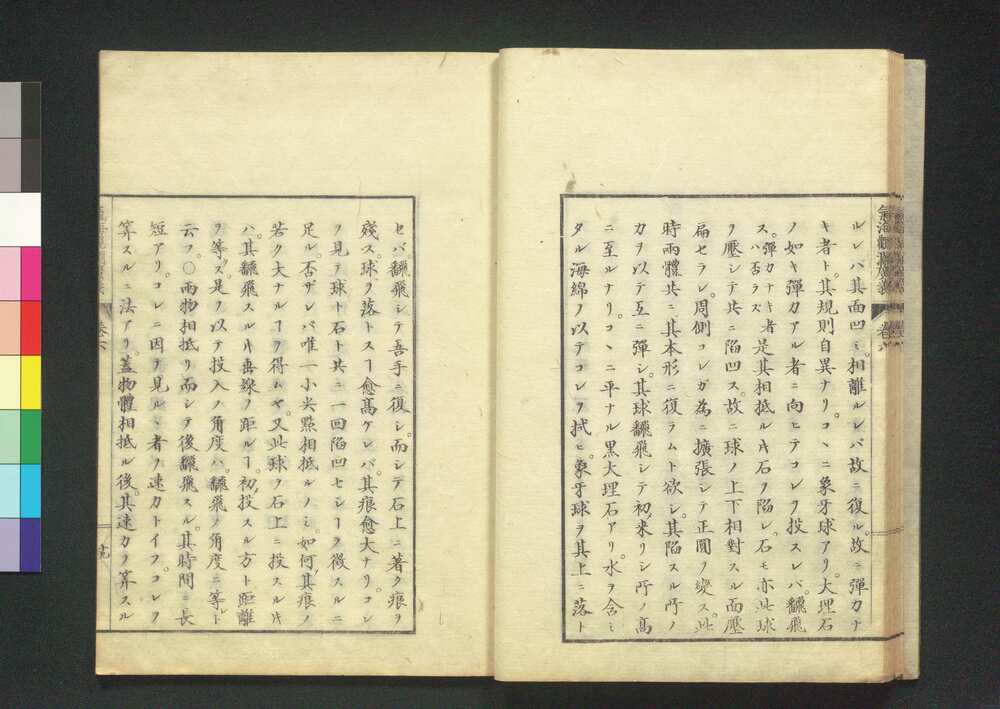 氣海觀瀾廣義
卷六
ルレバ其面凹ミ。相離ルレバ故ニ復ル。故ニ彈力ナ
キ者ト。其規則自異ナリ。コヽニ象牙球アリ。大理石
ノ如キ彈力アル者ニ向ヒテコレヲ投スレバ。飜飛
ス。彈力ナキ者ハ否ラズ是其相抵ルキ石ヲ陷レ。石モ亦此球
ヲ壓シテ共ニ陷凹ス。故ニ球ノ上下相對スル面壓
扁セラレ。周側コレガ爲ニ擴張シテ正圓ヲ變ス。此
時兩體共ニ。其本形ニ復ラムト欲シ。其陷スル所ノ
力ヲ以テ互ニ彈シ。其球飜飛シテ初来リシ所ノ高
ニ至ルナリ。コヽニ平ナル黑大理石アリ。水ヲ含ミ
タル海綿ヲ以テコレヲ拭ヒ。象牙球ヲ其上ニ落ト
セバ。飜飛シテ吾手ニ復シ。而シテ石上ニ著ク痕ヲ
殘ス。球ヲ落トスヿ愈高ケレバ。其痕愈大ナリ。コレ
ヲ見テ球ト石ト共ニ一回陷凹セシヿヲ徵スルニ
足ル。否ザレバ唯一小尖點相抵ルノミ。如何ゾ其痕ノ
若ク大ナルヿヲ得ムヤ。又此球ヲ石上ニ投スルキ
ハ。其飜飛スルキ垂線ヲ距ルヿ。初投スル方ト距離
ヲ等ス。是ヲ以テ投入ノ角度ハ。飜飛ノ角度ニ等シト
云フ。○兩物相抵リ而シテ後飜飛スル。其時間ニ長
短アリ。コレニ因ヲ見ルヽ者ヲ速力トイフ。コレヲ
算スルニ法アリ。蓋物體相抵ル後。其速力ヲ算スル
卷六